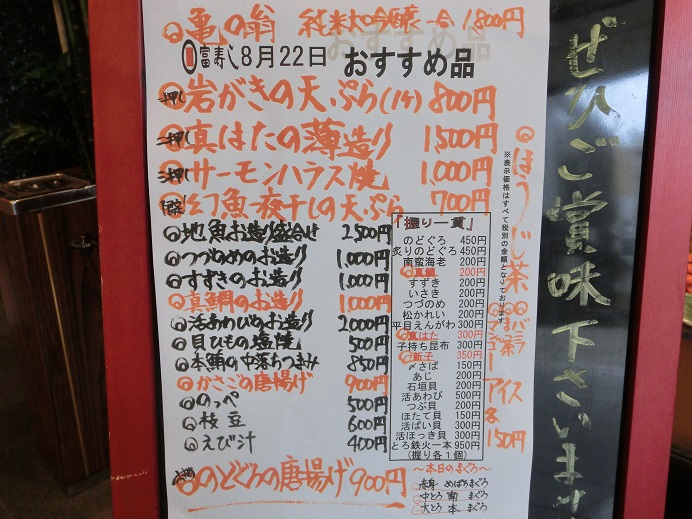 亀の翁 純米大吟醸 一合 1,800円
富寿し 8月22日 おすすめ品
一押し 岩がきの天ぷら(1ケ) 800円
二押し 真はたの薄造り 1,500円
三押し サーモンハラス焼 1,000円
幻魚一夜干しの天ぷら 700円
地魚お造り盛合せ 2,500円
つづのめのお造り 1,000円
すずきのお造り 1,000円
真鯛のお造り 1,000円
活あわびのお造り 2000円
貝ひもの塩焼 500円
本鮪の中落ちつまみ 850円
かさごの唐揚げ 900円
のっぺ 500円
枝豆 600円
えび汁 400円
のどぐろの唐揚げ 900円
「握り一貫」
のどぐろ 450円
炙りのどぐろ 450円
南蛮海老 200円
真鯛 200円
すずき 200円
いさき 200円
つづのめ 200円
松かれい 200円
平目えんがわ 300円
真はた 300円
子持ち昆布 300円
新子 350円
〆さば 150円
あじ 200円
石垣貝 200円
活あわび 500円
つぶ貝 200円
ほたて貝 150円
活ばい貝 300円
活ほっき貝 300円
とろ鉄火一本 950円
(握り各1個)
～本日のまぐろ～
赤身 めばちまぐろ
中とろ 南 まぐろ
大とろ 本 まぐろ
※表示価格はすべて税別の金額となっております
ほうじ茶
バニラ
アイス
各150円
ぜひご賞味下さいませ